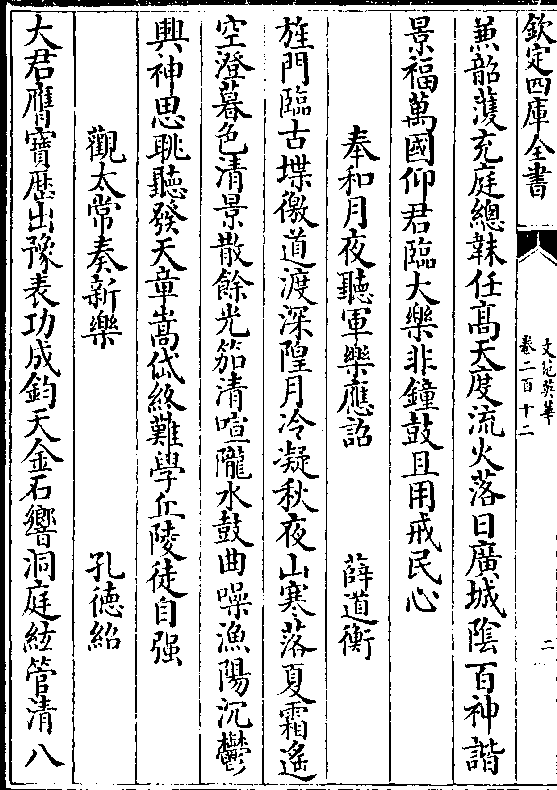 欽定四庫全書
文苑英華
卷二百十二
二
兼韶䕶充庭總韎任髙天度流火落日廣城隂百神諧
景福萬國仰君臨大樂非鐘鼓且用戒民心
奉和月夜聽軍樂應詔 薛道衡
旌門臨古堞徼道渡深隍月冷凝秋夜山寒落夏霜遙
空澄暮色清景散餘光笳清喧隴水鼓曲噪漁陽沉鬱
興神思眺聽發天章嵩岱終難學丘陵徒自强
觀太常奏新樂 孔徳紹
大君膺寳歴出豫表功成鈞天金石響洞庭絃管清八